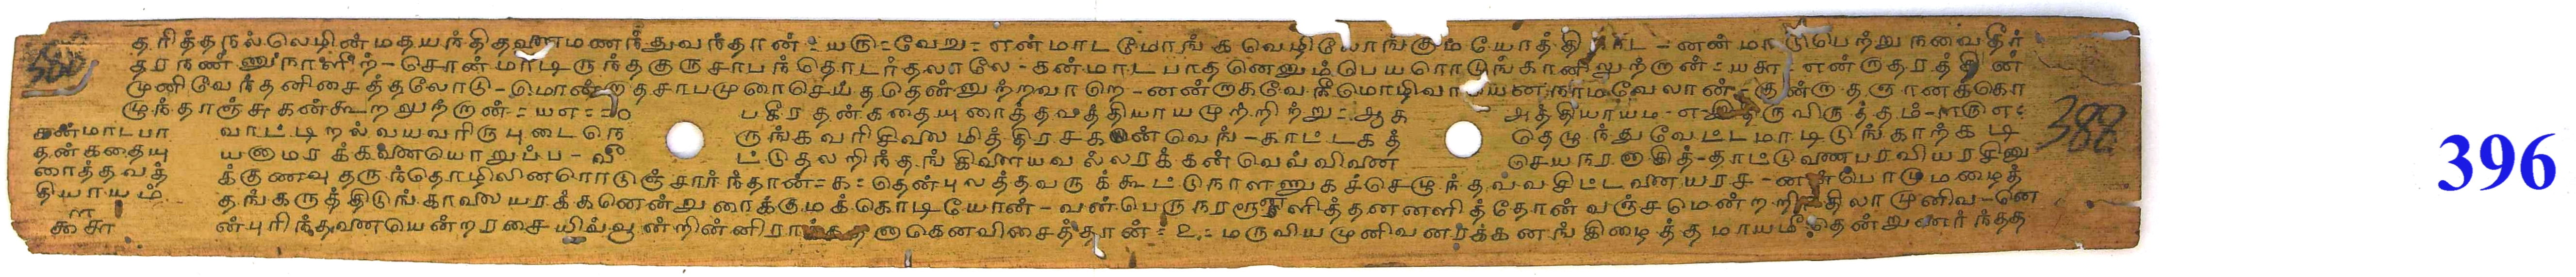 தரித்தநல்லெழின்மதயந்திதனைமணந்துவந்தான் = யரு = வேறு = என்மாட மோங்க வெழிலோங்கும் யோத்தி நாட - னன்மாடுபெற்று நவைதீர்
தரநண்ணுநாளிற் - சொன்மாடிருந்தகுருசாபந்தொடர்தலாலே - கன்மாடபாதனெனும்பெயரொடுங்கானிலுற்றான் = யசா = என்றுதரத்தின்
முனிவேந்தனிசைத்தலோடு - மொன்றதசாபமுரைசெய்ததென்னுற்றவாறெ - னன்றுக்வே நீமொழிவா யெனநாமவேலான் - குன்றுதஞானக்கொ
ழுந்தாஞ்சுகன்கூறலுற்றான் = யஎ =
பகீரதன்கதையுரைத்தவத்தியாயமுற்றிற்று = ஆக
அத்தியாயம் - எ - இதிருவிருத்தம் - ளருஎ =
கன்மாடபா
தன்கதையு
ரைத்தவத்
தியாயம்
வாட்டிறல்வயவரிருபுடைநெ ருங்கவரிசிலைமித்திரசகன்வெங் - காட்டகத் தெழுந்துவேட்டமாடிடுங்காற்கடி
யனாமரக்கனையொறுப்ப - வீ ட்டுதலறிந்தங்கிளையவல்லரக்கன்வெவ்வினை செயநரனாகித் - தாட்டுணைபரவியரசினு
க்குணவுதருந்தொழிலினரொடுஞ்சார்ந்தான் = க = தென்புலத்தவருக்கூட்டுநாளணுகச்செழுந்தவவசிட்டனையரச - னன்போடுமழைத்
தங்கருத்திடுங்காலையரக்கனென்றுரைக்குமக்கொடியோன் - வன்பெருநரரூனளித்தனனளித்தோன்வஞ்சமென்றறிதிலாமுனிவ - னெ
ன்புரிந்தனையென்றரசையிவ்வூன்றின்னிராக்கதனாகெனவிசைத்தான் = உ = மருவியமுனிவனரக்கனங்கிழைத்தமாயமீதென்றுணர்ந்தத
380
388
396